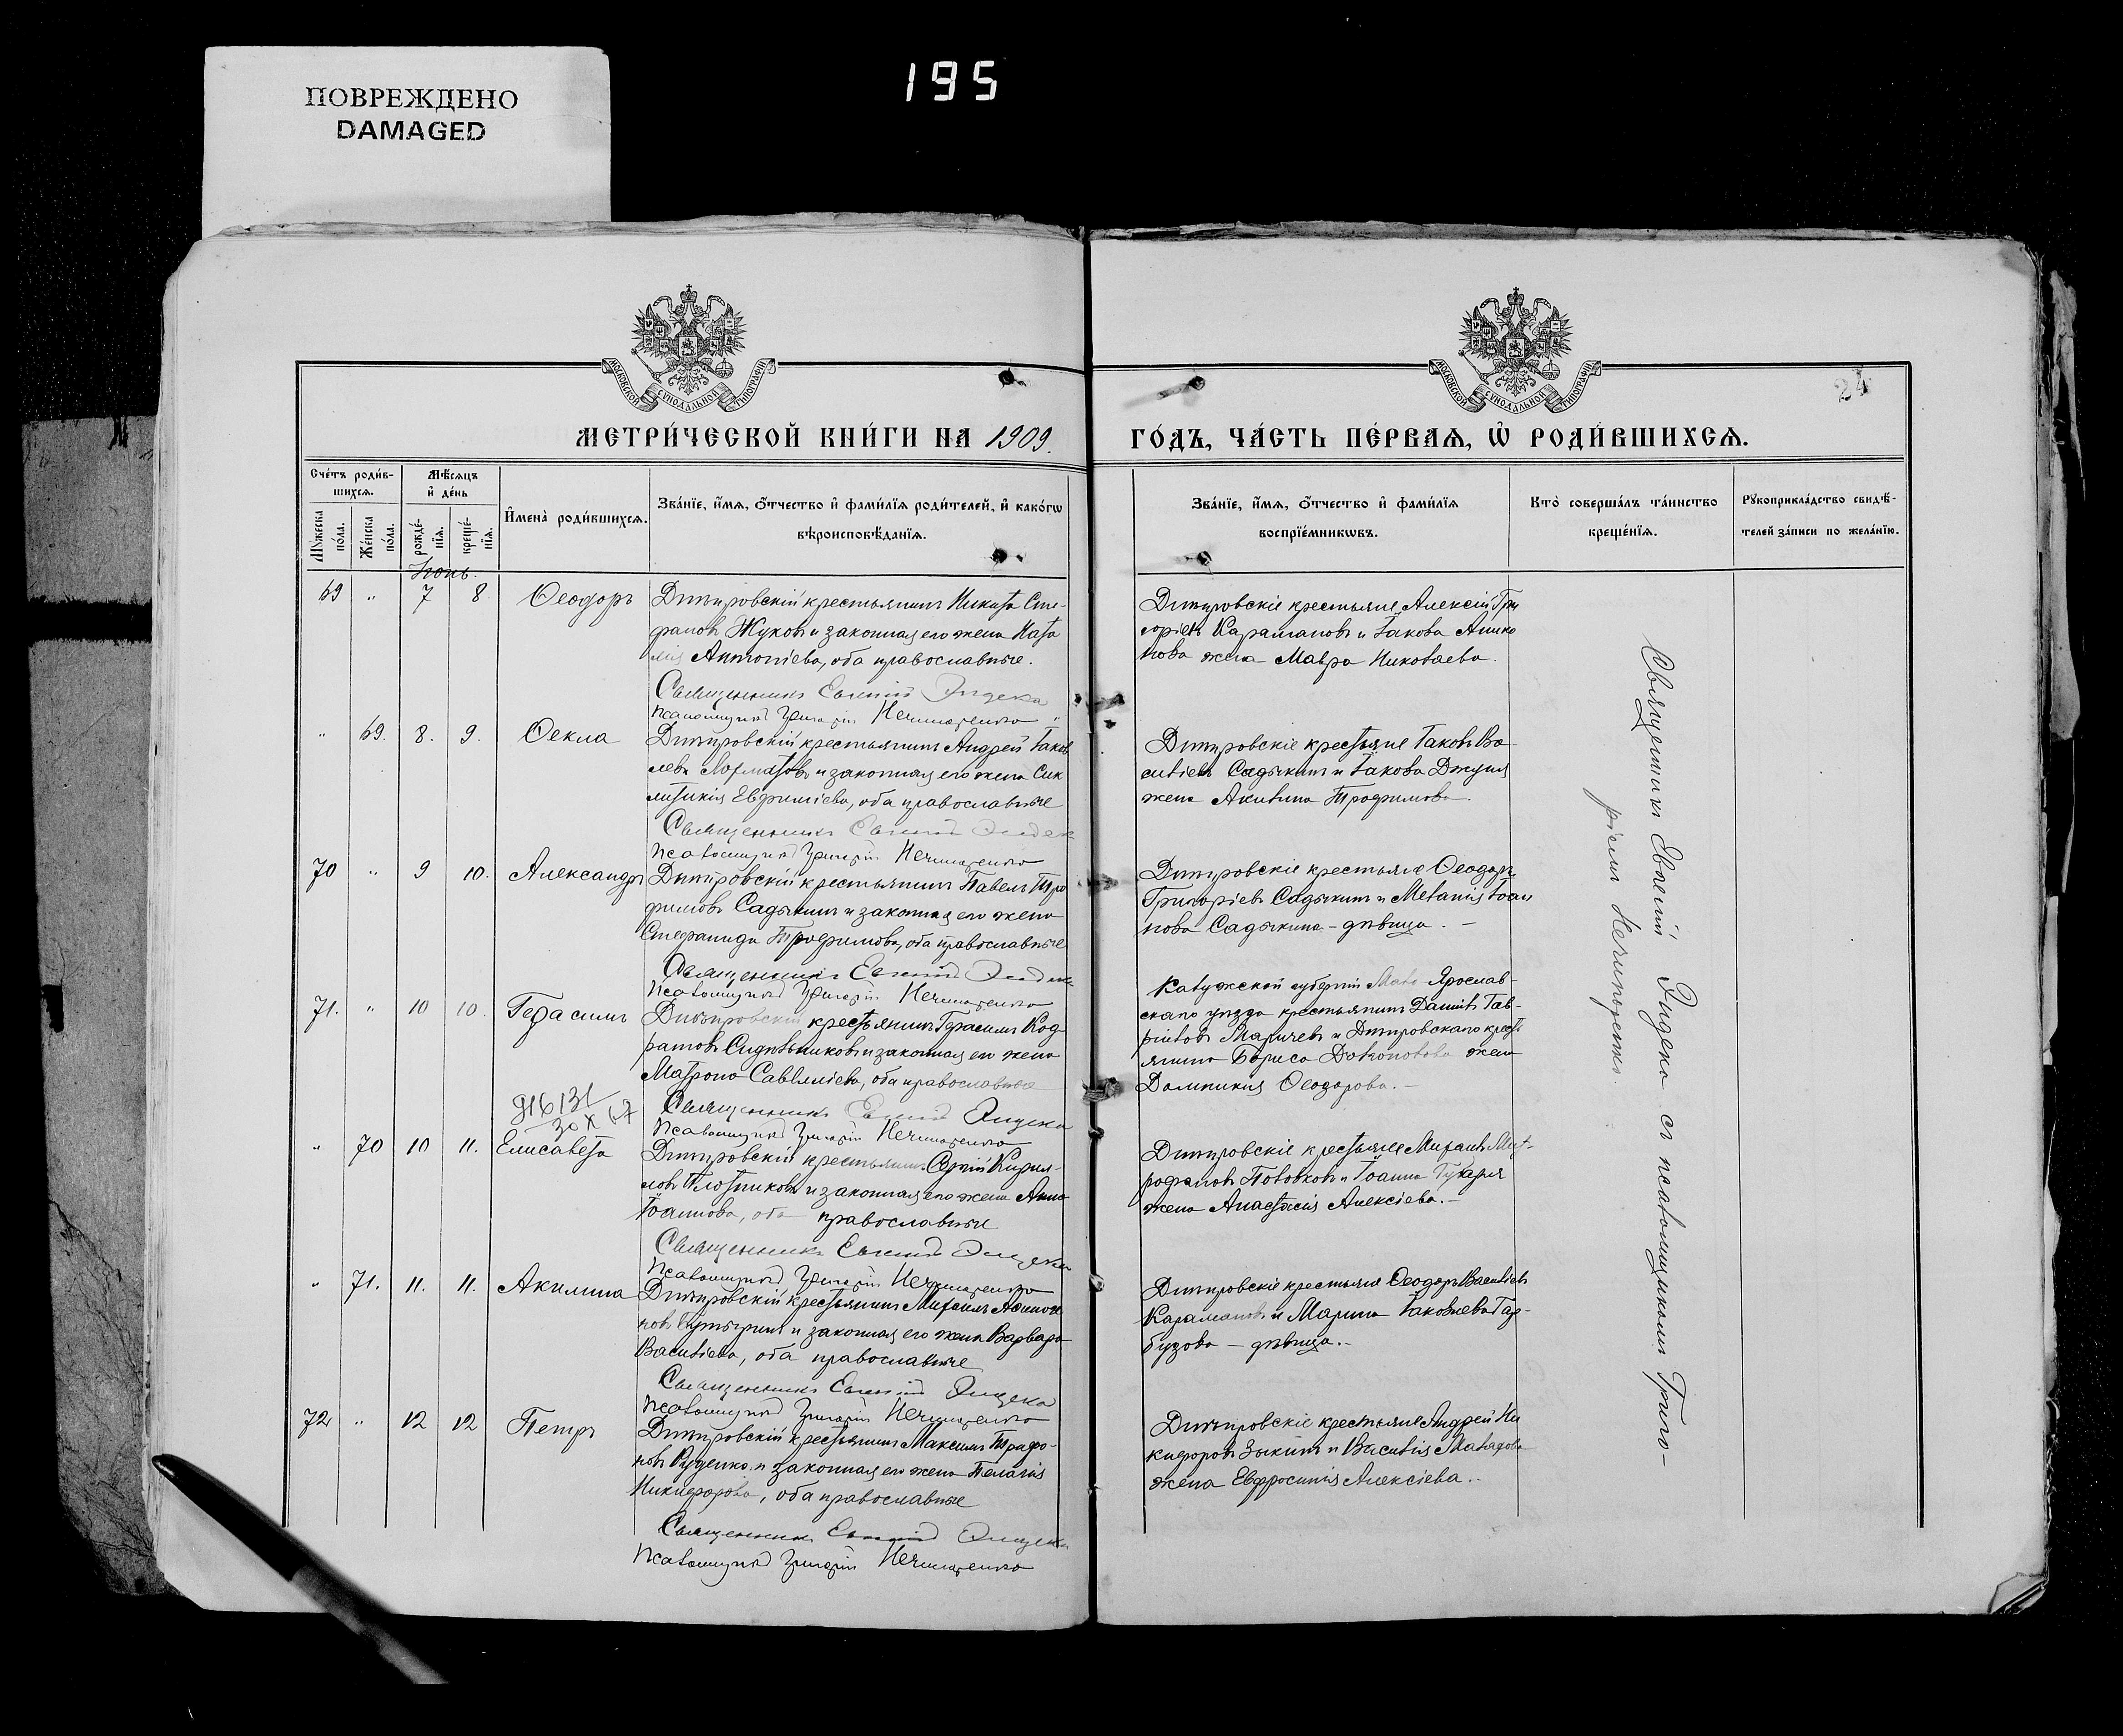 195
ПОВРЕЖДЕНО
DAMAGED
МОСКОВСКОЙ СѴНОДАЛЬНОЙ ТИПОГРАФІИ
МОСКОВСКОЙ СѴНОДАЛЬНОЙ ТИПОГРАФІИ
24
МЕТРИ́ЧЕСКОЙ КНИ́ГИ НА 1909.
ГО́ДЪ, ЧА́СТЬ ПЕ́РВАѦ, Ѡ҆ РОДИ́ВШИХСѦ.
Сче́тъ роди́в-
шихсѧ.
Мꙋ́жеска по́ла.
Же́нска по́ла.
Мѣ́сѧцъ
и҆ де́нь
рожде́-
нїѧ.
креще́-
нїѧ.
И҆мена̀ роди́вшихсѧ.
Зва́нїе, и҆́мѧ, ѻ҆́тчество и҆ фами́лїѧ роди́телей, и҆ како́гѡ
вѣроисповѣ́данїѧ.
Зва́нїе, и҆́мѧ, ѻ҆́тчество и҆ фами́лїѧ
воспрїе́мникѡвъ.
Кто̀ соверша́лъ та́инство
креще́нїѧ.
Рꙋкоприкла́дство свидѣ́-
телей за́писи по жела́нїю.
Іюнь.
69 " 7 8 Ѳеодоръ
Днѣпровскій крестьянинъ Никита Сте-
фановъ Жуковъ и законная его жена Ната
лія Антоніева, оба православные.
Священникъ Евгеній Эндека
Псаломщикъ Григорій Нечипоренко
Днѣпровскіе крестьяне Алексій Гри
горіевъ Караманов и Іакова
нова жена Мавра Николаева.
" 69. 8. 9. Ѳекла
Днѣпровскій крестьянинъ Андрей Іаков
левъ и законная его жена Син
клитикія Евфиміева, оба православные
Священникъ Евгеній Эндека
Псаломщикъ Григорій Нечипоренко
Днѣпровскіе крестьяне Іаковъ Ва-
силіевъ Садыкинъ и Іакова
жена Акилина Трофимова.
70 " 9 10. Александръ
Днѣпровскій крестьянинъ Павелъ Тро
фимовъ Садыкинъ и законная его жена
Стефанида Трофимова, оба православные
Священникъ Евгеній Эндека
Псаломщикъ Григорій Нечипоренко
Днѣпровскіе крестьяне Ѳеодоръ
Григоріевъ Садыкинъ и Меланія Іоан
нова Садыкина - дѣвица. -
71. " 10 10. Герасимъ
Днѣпровскій крестьянинъ Герасимъ Код
ратовъ Сидѣльниковъ и законная его жена
Матрона Савелиева, оба православные
Священникъ Евгеній Эндека
Псаломщикъ Григорій Нечипоренко
Калужской губерніи Мало Ярослав-
скаго уѣзда крестьянинъ Даніилъ Гав-
ріиловъ Маричевъ и Днѣпровскаго кресть
янина Бориса жена
Домникия Ѳеодорова. -
916131
30 X 67
" 70 10 11. Елисавета
Днѣпровскій крестьянинъ Сергій Кирил-
ловъ Плотниковъ и законная его жена Анна
Іоаннова, оба православные
Священникъ Евгеній Эндека
Псаломщикъ Григорій Нечипоренко
Днѣпровскіе крестьяне Михаилъ Мит-
рофановъ и Іоанна
жена Анастасія Алексіева. -
" 71. 11. 11. Акилина
Днѣпровскій крестьянинъ Михаилъ
и законная его жена Варвара
Василіева, оба православные
Священникъ Евгеній Эндека
Псаломщикъ Григорій Нечипоренко
Днѣпровскіе крестьяне Ѳеодоръ Василіевъ
Карамановъ и Марина Іаковлева Гар-
бузова - дѣвица. -
72 " 12 12 Петръ
Днѣпровскій крестьянинъ Максимъ Трифо-
новъ Руденко и законная его жена Пелагія
Никифорова, оба православные
Священникъ Евгеній Эндека
Псаломщикъ Григорій Нечипоренко
Днѣпровскіе крестьяне Андрей Ни
кифоровъ Зыкинъ и Василія
жена Евфросинія Алексіева. -
Священникъ Евгеній Эндека съ псаломщикомъ Григо-
ріемъ Нечипоренко.